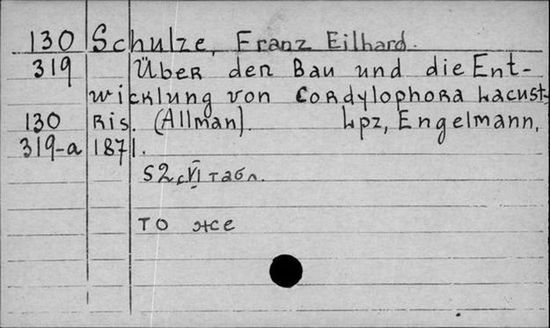 130 Schulze, Franz Eilhard.
319 Über den Bau und die Ent-
wicklung von Cordylophora lacust-
130 ris. (Allman). Lpz, Engelmann,
319-a 1871.
52 с, VI табл.
то же